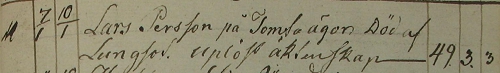 11 7/1 10/1 Lars Persson på Tomta ägor Död af
Lungsot. uplöst äktenskap — 49. 3. 3